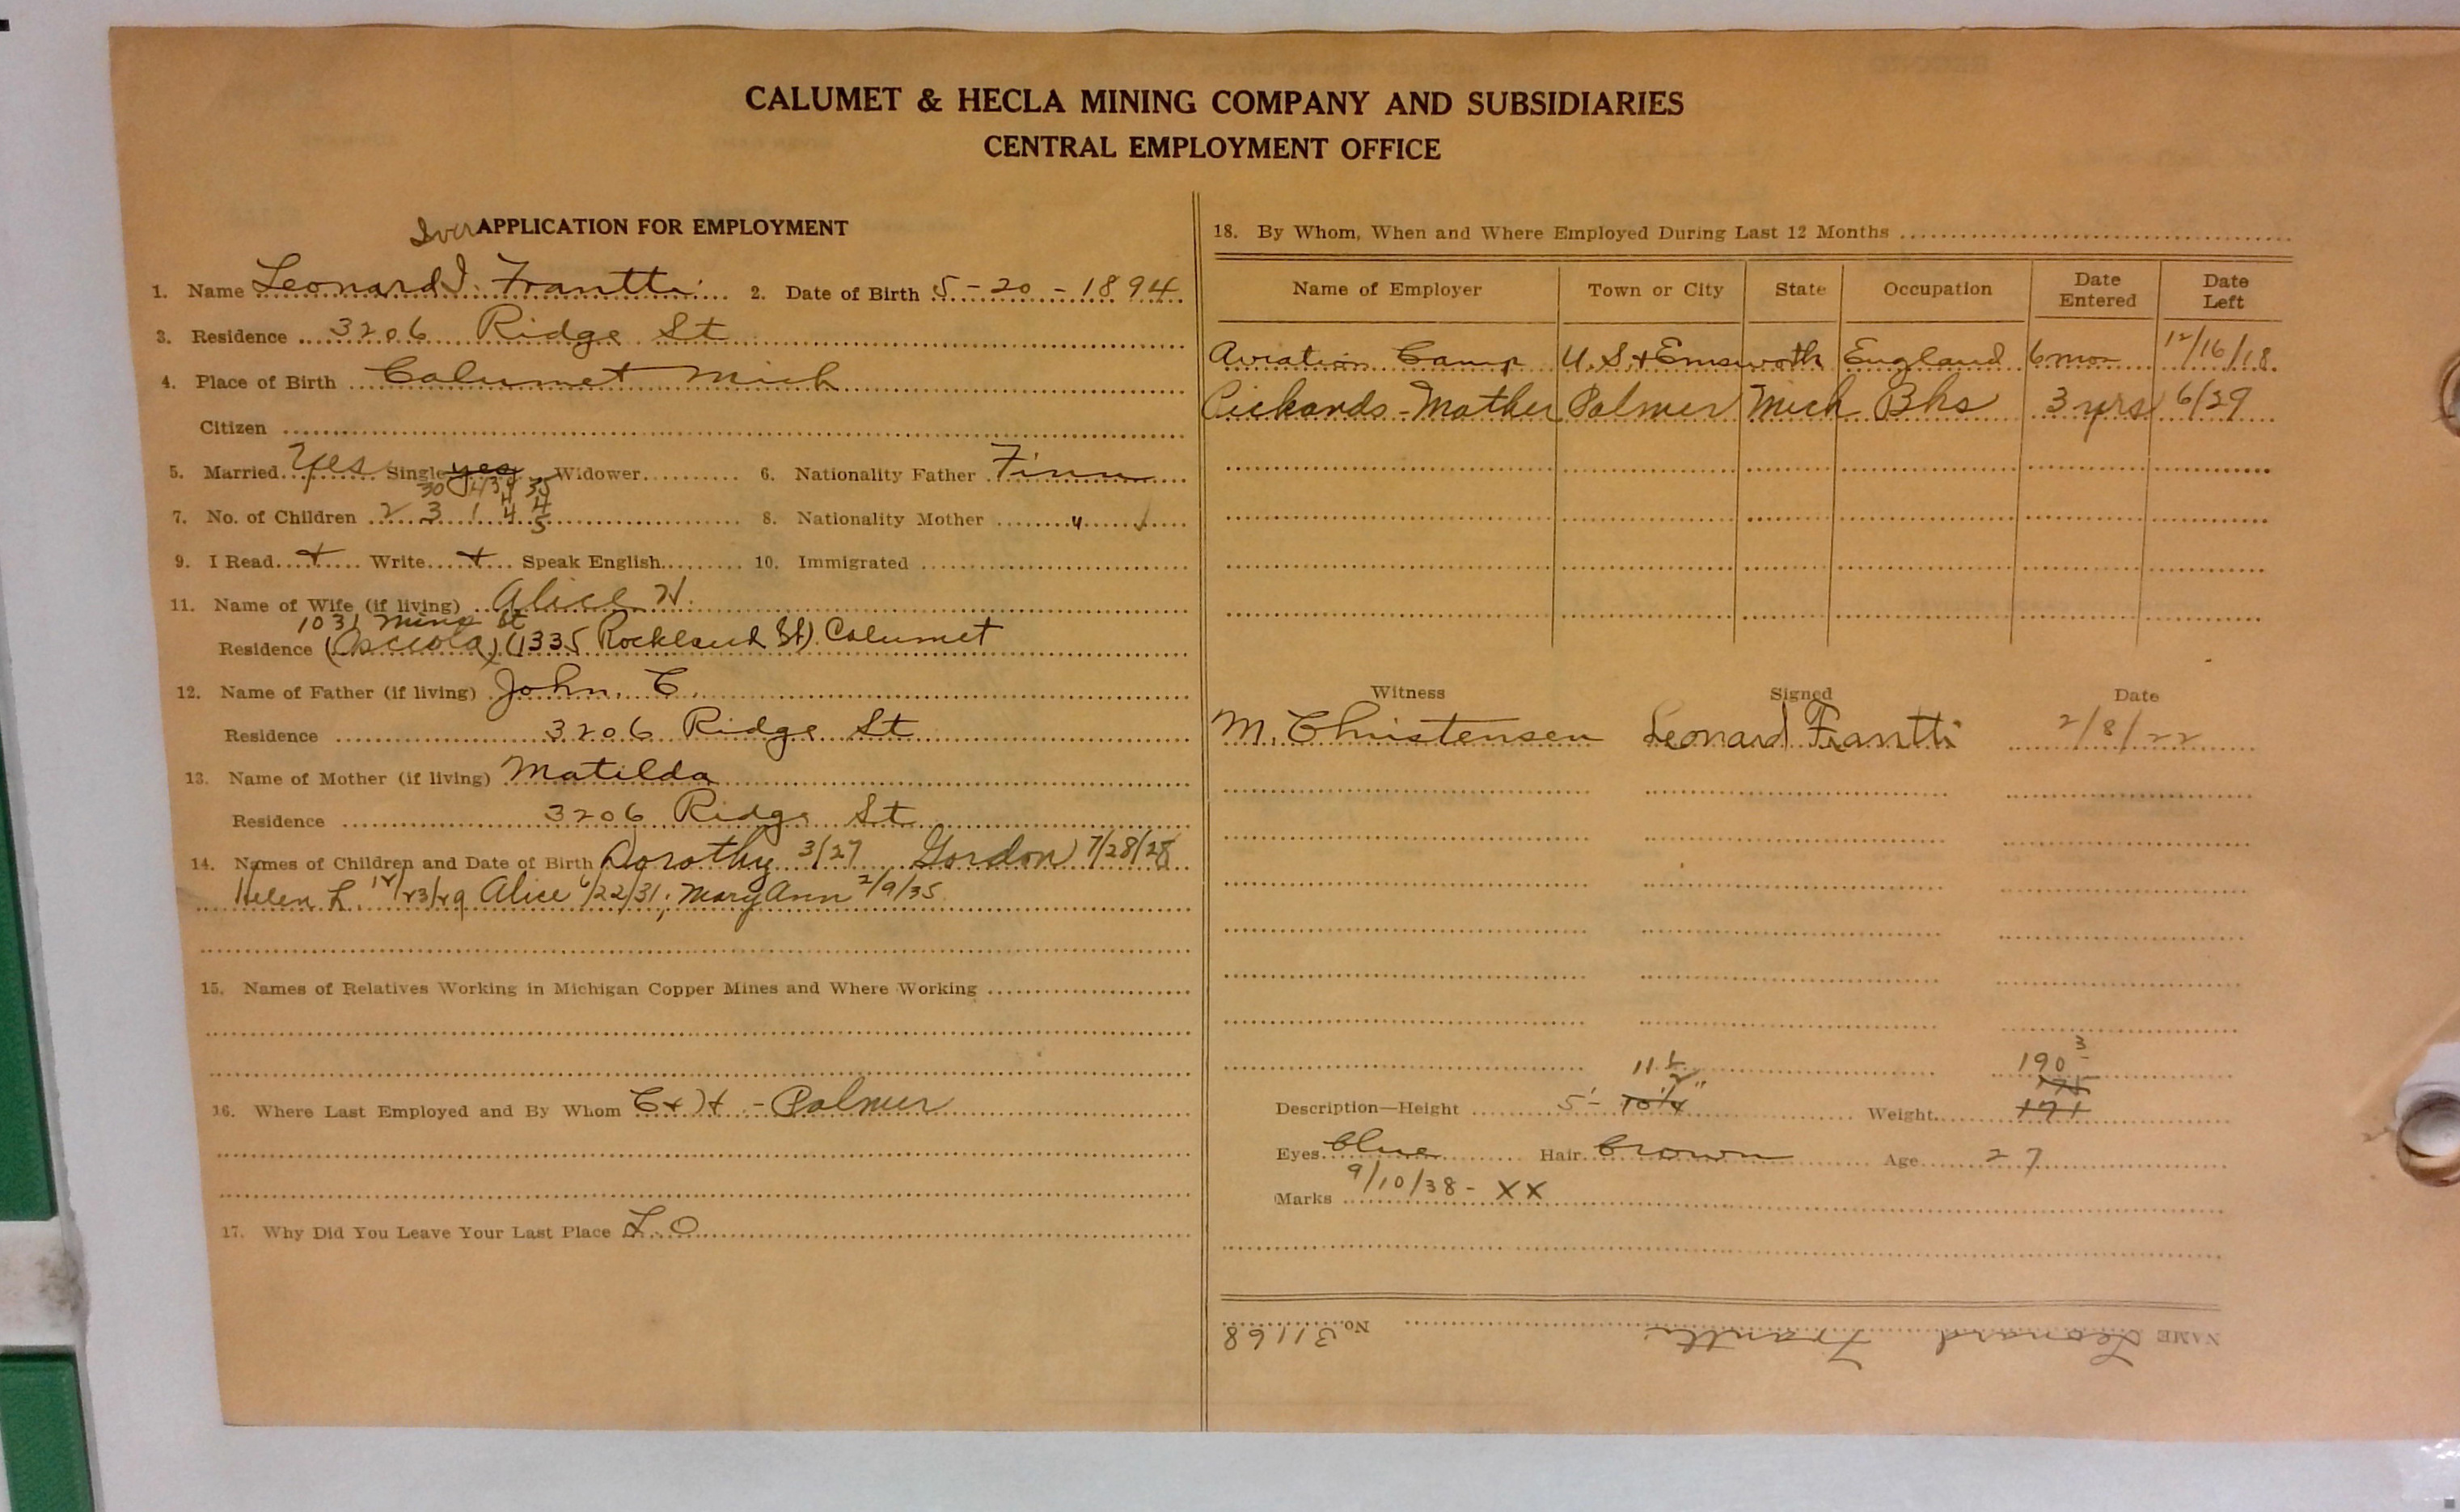 CALUMET & HECLA MINING COMPANY AND SUBSIDIARIES
CENTRAL EMPLOYMENT OFFICE
Iver APPLICATION FOR EMPLOYMENT
1. Name Leonard I. Frantti 2. Date of Birth 5-20-1894
3. Residence 3206 Ridge St
4. Place of Birth Calumet Mich
Citizen
5. Married Yes Single yes Widower 6. Nationality Father Finn
30 4 34 35
7. No. of Children 2 3 1 4 5 8. Nationality Mother "
9. I Read + Write + Speak English 10. Immigrated
11. Name of Wife (if living) Alice H.
1031 Mine St
Residence (Osceola) (1335 Rockland St) Calumet
12. Name of Father (if living) John. C.
Residence 3206 Ridge St
13. Name of Mother (if living) Matilda
Residence 3206 Ridge St
14. Names of Children and Date of Birth Dorothy 3/27 Gordon 7/28/28
Helen L. 12/23/29 Alice 6/22/31; Mary Ann 2/9/35
15. Names of Relatives Working in Michigan Copper Mines and Where Working
16. Where Last Employed and By Whom C+H - Palmer
17. Why Did You Leave Your Last Place L.O
18. By Whom, When and Where Employed During Last 12 Months
Name of Employer Town or City State Occupation Date Entered Date Left
Aviation Camp U.S.+Emsworth England 6 mos 12/16/18
Pickands-Mather Palmer Mich Bhs 3 yrs 6/29
Witness Signed Date
M. Christensen Leonard Frantti 2/8/22
11 1/2 190 3
175
Description—Height 5'-10 1/4" Weight 171
Eyes blue Hair brown Age 27
Marks 9/10/38- XX
NAME Leonard Frantti No. 31168